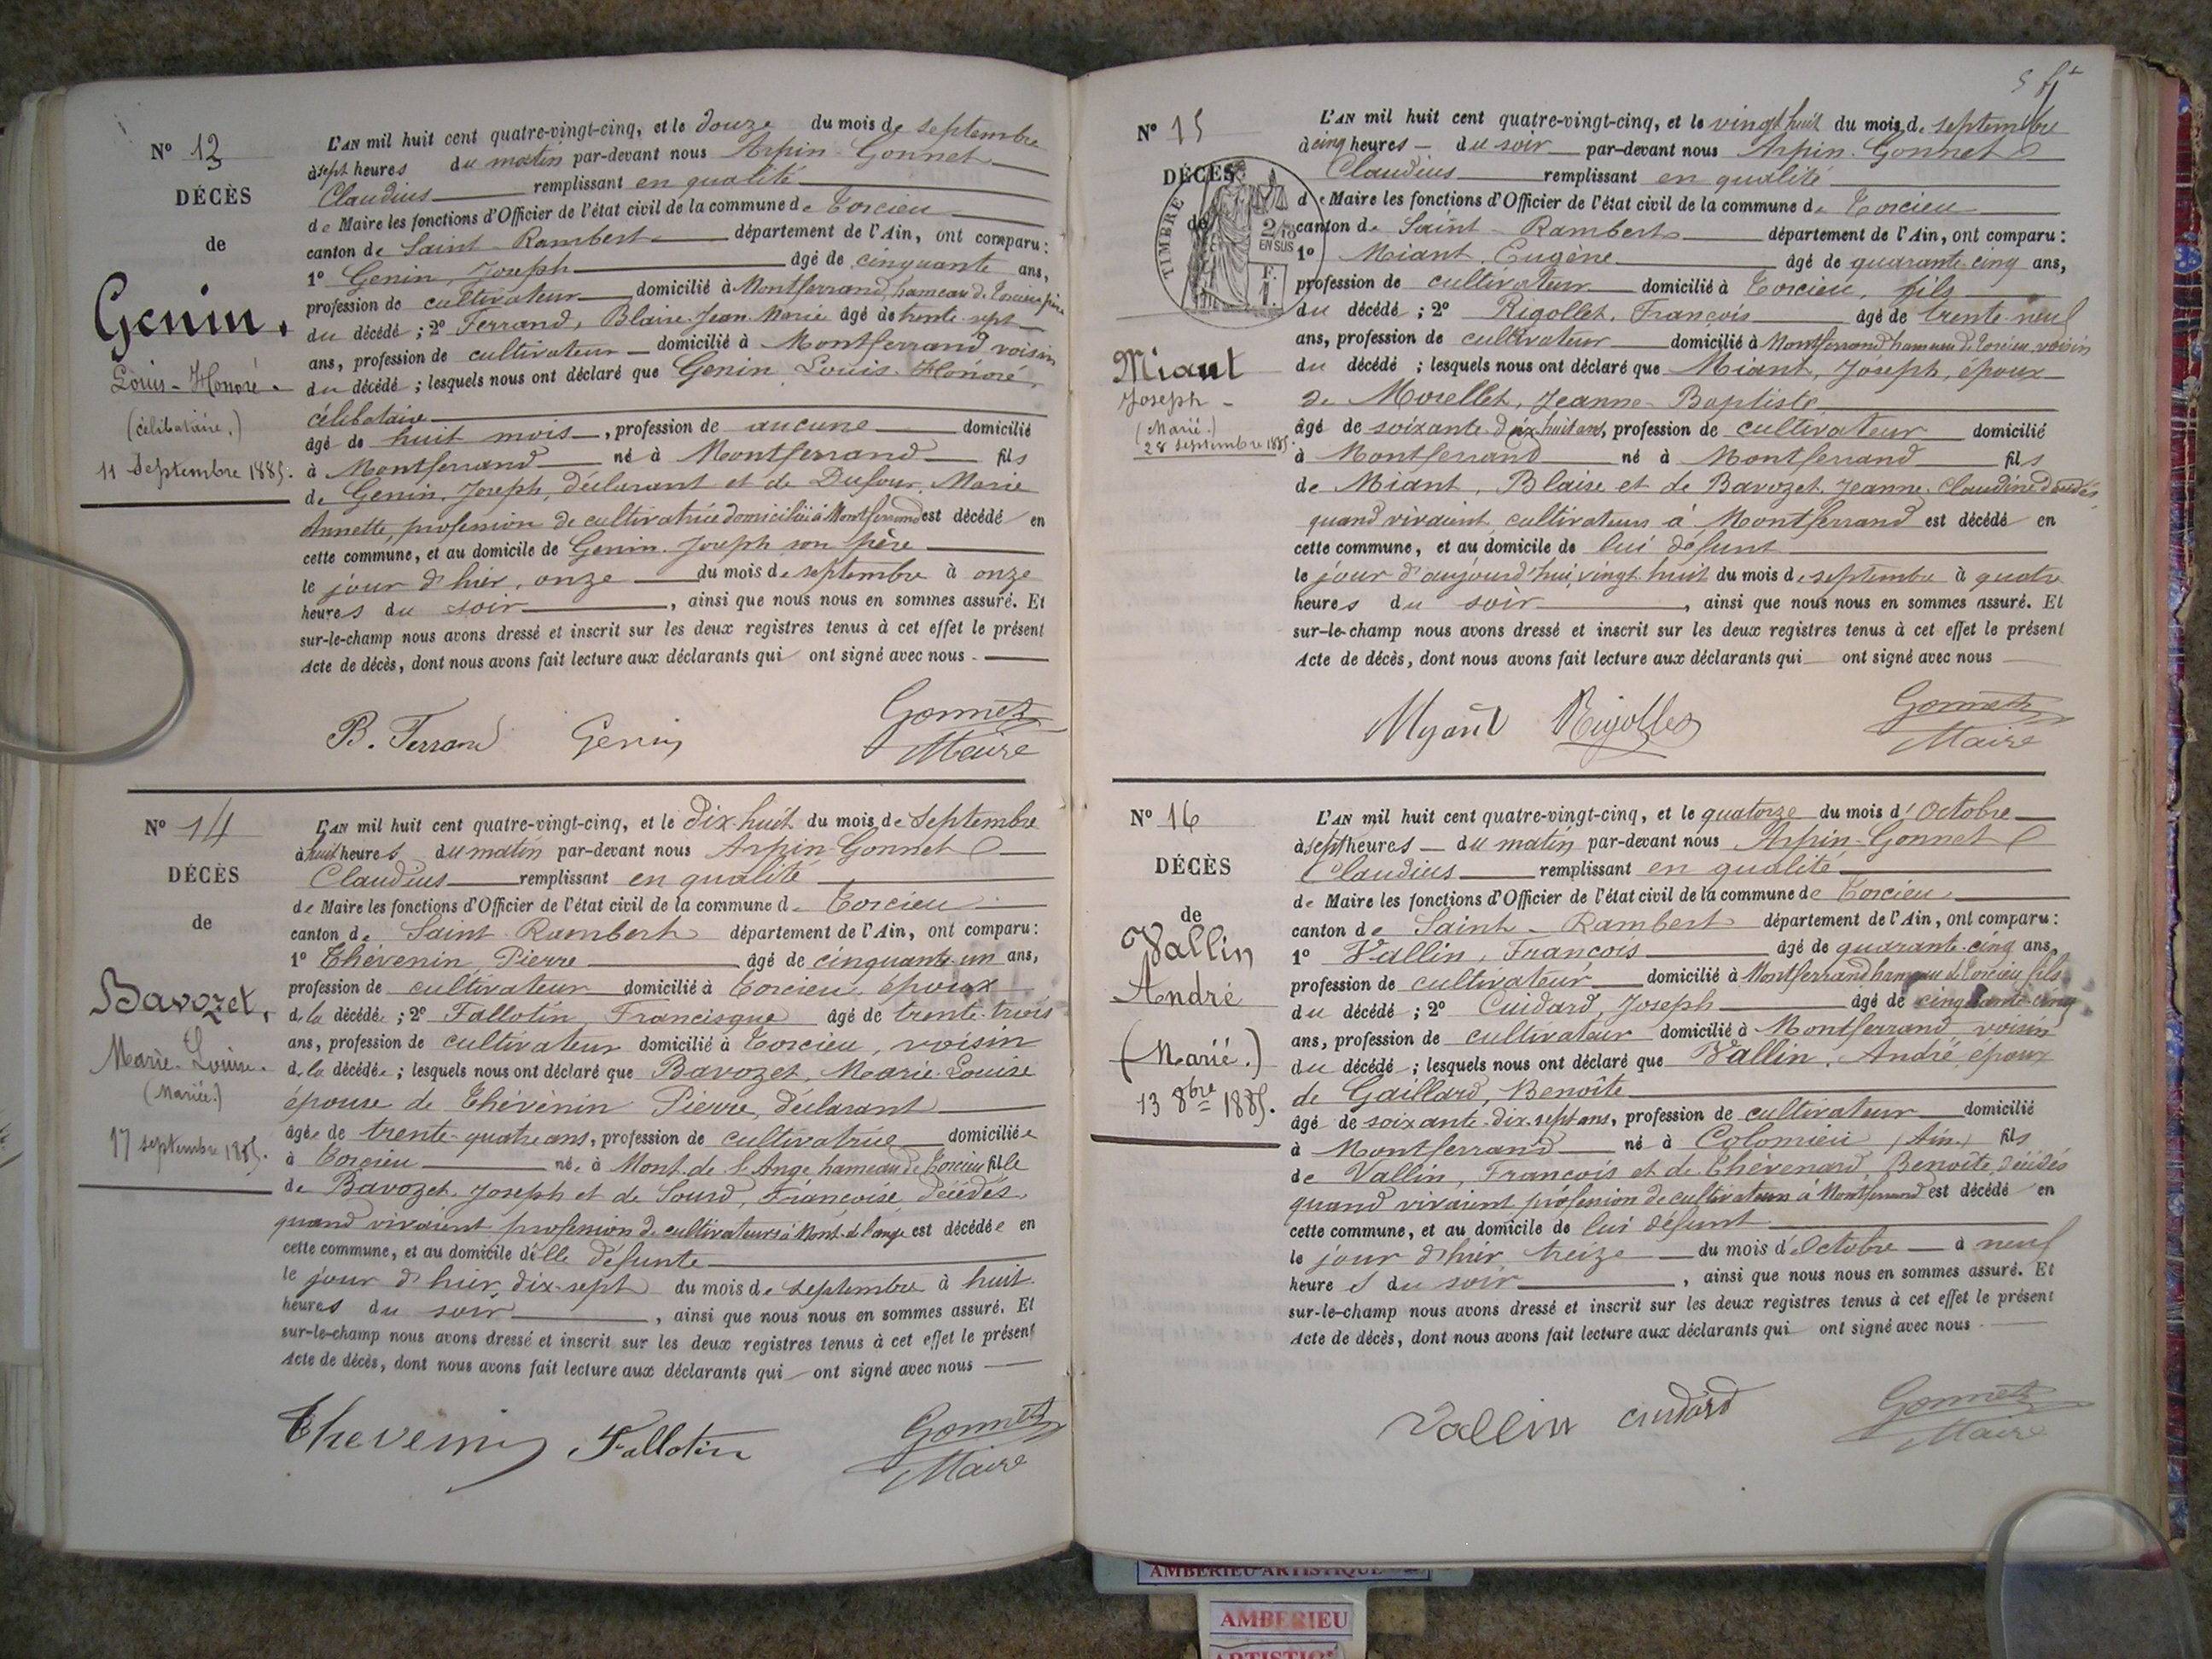 N° 13
DÉCÈS
de
Genin,
Louis-Honoré.
(célibataire.)
11 Septembre 1885.
L'AN mil huit cent quatre-vingt-cinq, et le douze du mois de septembre
à sept heures du matin par-devant nous Arpin-Gonnet
Claudius remplissant en qualité
de Maire les fonctions d'Officier de l'état civil de la commune de Torcieu
canton de Saint-Rambert département de l'Ain, ont comparu:
1° Genin, Joseph âgé de cinquante ans,
profession de cultivateur domicilié à Montferrand, hameau de Torcieu père
du décédé; 2° Ferrand, Blaise Jean Marie âgé de trente-sept
ans, profession de cultivateur domicilié à Montferrand voisin
du décédé; lesquels nous ont déclaré que Genin Louis-Honoré,
célibataire
âgé de huit mois, profession de aucune domicilié
à Montferrand né à Montferrand fils
de Genin, Joseph, déclarant et de Dufour, Marie
Annette, profession de cultivatrice domiciliée à Montferrand est décédé en
cette commune, et au domicile de Genin Joseph son père
le jour d'hier, onze du mois de septembre à onze
heures du soir, ainsi que nous nous en sommes assuré. Et
sur-le-champ nous avons dressé et inscrit sur les deux registres tenus à cet effet le présent
Acte de décès, dont nous avons fait lecture aux déclarants qui ont signé avec nous.
B. Ferrand Genin Gonnet
Maire
N° 14
DÉCÈS
de
Bavozet,
Marie-Louise.
(Mariée.)
17 septembre 1885.
L'AN mil huit cent quatre-vingt-cinq, et le dix-huit du mois de Septembre
à huit heures du matin par-devant nous Arpin-Gonnet
Claudius remplissant en qualité
de Maire les fonctions d'Officier de l'état civil de la commune de Torcieu
canton de Saint-Rambert département de l'Ain, ont comparu:
1° Thévenin, Pierre âgé de cinquante-un ans,
profession de cultivateur domicilié à Torcieu, époux
de la décédée; 2° Fallotin, Francisque âgé de trente-trois
ans, profession de cultivateur domicilié à Torcieu, voisin
de la décédée; lesquels nous ont déclaré que Bavozet, Marie-Louise
épouse de Thévenin Pierre, déclarant
âgée de trente-quatre ans, profession de cultivatrice domiciliée
à Torcieu née à Mont de l'Ange hameau de Torcieu fille
de Bavozet, Joseph et de Sourd, Françoise, décédés
quand vivaient profession de cultivateurs à Mont-de-l'ange est décédée en
cette commune, et au domicile d'elle défunte
le jour d'hier, dix-sept du mois de septembre à huit
heures du soir, ainsi que nous nous en sommes assuré. Et
sur-le-champ nous avons dressé et inscrit sur les deux registres tenus à cet effet le présent
Acte de décès, dont nous avons fait lecture aux déclarants qui ont signé avec nous
Thevenin Fallotin Gonnet
Maire
N° 15
DÉCÈS
de
TIMBRE
EN SUS
Miant
Joseph
(Marié.)
28 septembre 1885.
L'AN mil huit cent quatre-vingt-cinq, et le vingt huit du mois de septembre
à cinq heures du soir par-devant nous Arpin-Gonnet
Claudius remplissant en qualité
de Maire les fonctions d'Officier de l'état civil de la commune de Torcieu
canton de Saint-Rambert département de l'Ain, ont comparu:
1° Miant, Eugène âgé de quarante-cinq ans,
profession de cultivateur domicilié à Torcieu, fils
du décédé; 2° Rigollet, François âgé de trente-neuf
ans, profession de cultivateur domicilié à Montferrand hameau de Torcieu, voisin
du décédé; lesquels nous ont déclaré que Miant, Joseph, époux
de Morellet, Jeanne-Baptiste
âgé de soixante-dix-huit ans, profession de cultivateur domicilié
à Montferrand né à Montferrand fils
de Miant, Blaise et de Bavozet, Jeanne-Claudine décédés
quand vivaient cultivateurs à Montferrand est décédé en
cette commune, et au domicile de lui défunt
le jour d'aujourd'hui vingt-huit du mois de septembre à quatre
heures du soir, ainsi que nous nous en sommes assuré. Et
sur-le-champ nous avons dressé et inscrit sur les deux registres tenus à cet effet le présent
Acte de décès, dont nous avons fait lecture aux déclarants qui ont signé avec nous
Myant Rigollet Gonnet
Maire
N° 16
DÉCÈS
de
Vallin
André
(Marié.)
13 8bre 1885.
L'AN mil huit cent quatre-vingt-cinq, et le quatorze du mois d'Octobre
à sept heures du matin par-devant nous Arpin-Gonnet
Claudius remplissant en qualité
de Maire les fonctions d'Officier de l'état civil de la commune de Torcieu
canton de Saint-Rambert département de l'Ain, ont comparu:
1° Vallin, François âgé de quarante-cinq ans,
profession de cultivateur domicilié à Montferrand hameau de Torcieu, fils
du décédé; 2° Cuidard, Joseph âgé de cinquante-cinq
ans, profession de cultivateur domicilié à Montferrand voisin
du décédé; lesquels nous ont déclaré que Vallin, André époux
de Gaillard, Benoîte
âgé de soixante-dix-sept ans, profession de cultivateur domicilié
à Montferrand né à Colomieu (Ain) fils
de Vallin, François et de Thévenard, Benoîte, décédés
quand vivaient profession de cultivateurs à Montferrand est décédé en
cette commune, et au domicile de lui défunt
le jour d'hier, treize du mois d'Octobre à neuf
heures du soir, ainsi que nous nous en sommes assuré. Et
sur-le-champ nous avons dressé et inscrit sur les deux registres tenus à cet effet le présent
Acte de décès, dont nous avons fait lecture aux déclarants qui ont signé avec nous.
Vallin Cuidard Gonnet
Maire
AMBERIEU ARTISTIQUE
AMBERIEU
ARTISTIQUE